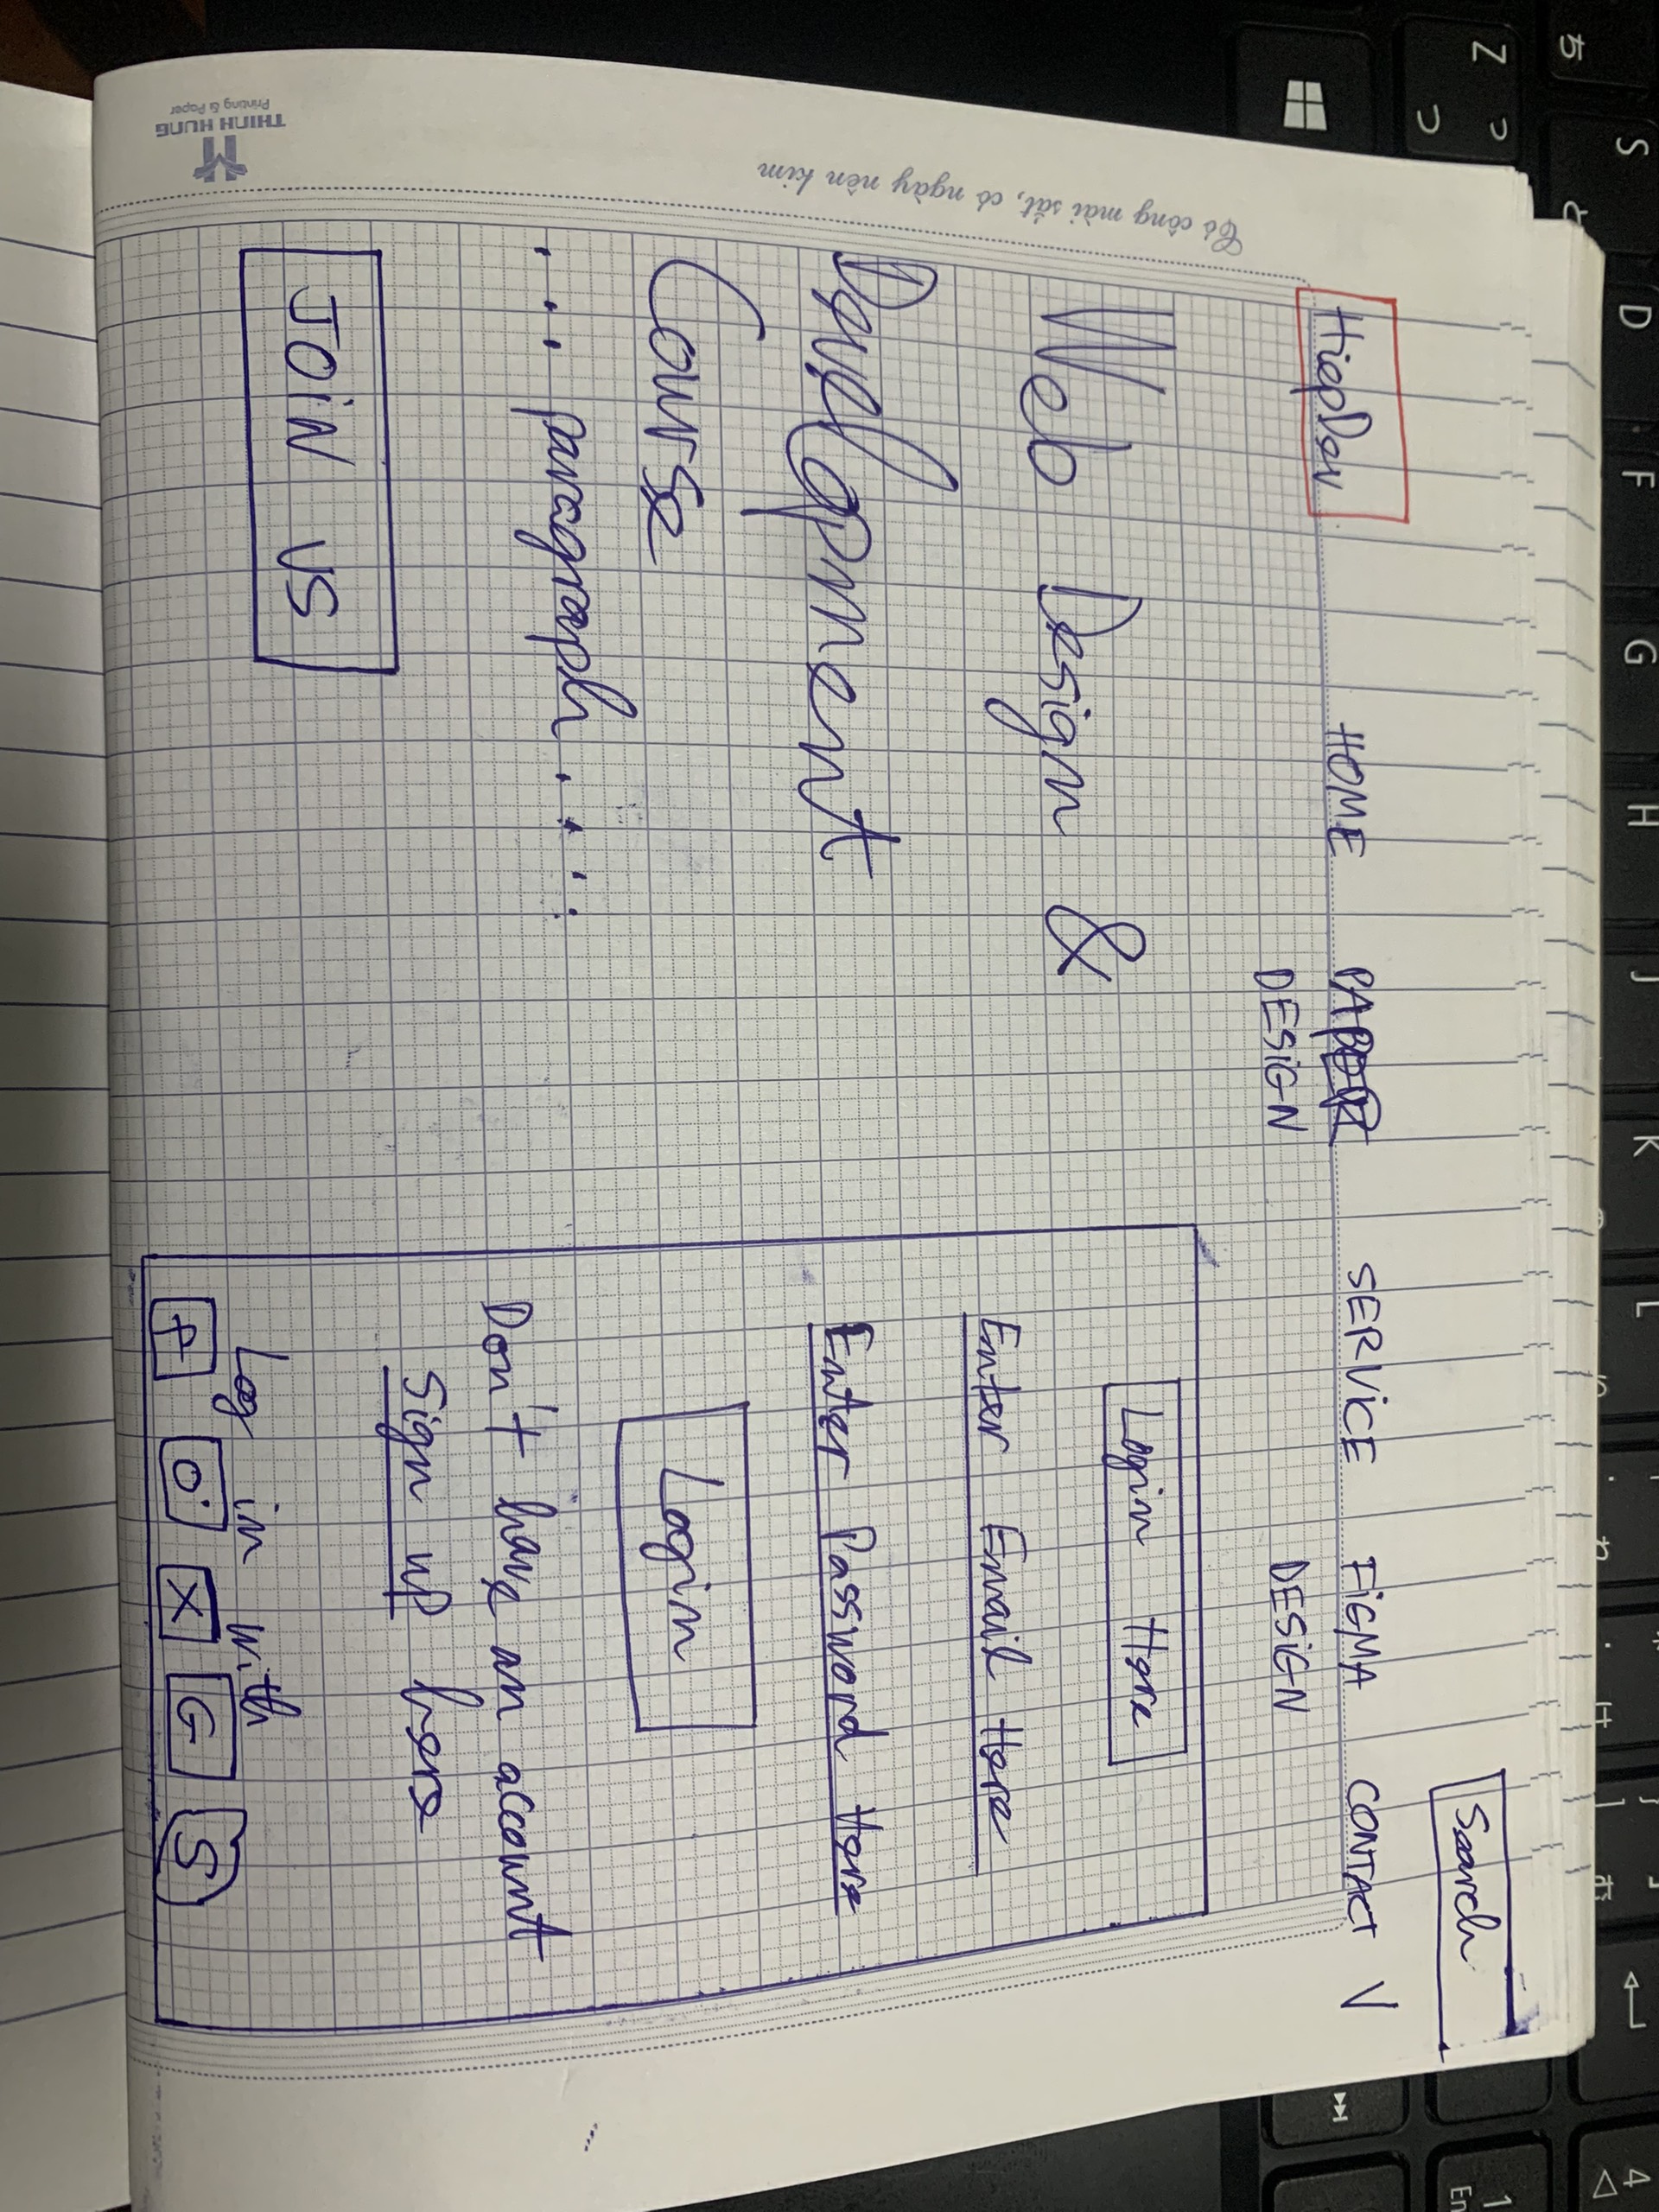 Search
HiepDev
HOME
SERVICE
FIGMA
DESIGN
CONTACT V
DESIGN
Web Design &
Development
Course
... paragraph ......
JOIN US
Login Here
Enter Email Here
Enter Password Here
Login
Don't have an account
Sign up here
Log in with
f O X G S
Có công mài sắt, có ngày nên kim
THINH HUNG
Printing & Paper
Z
S
D
F
G
H
J
K
L